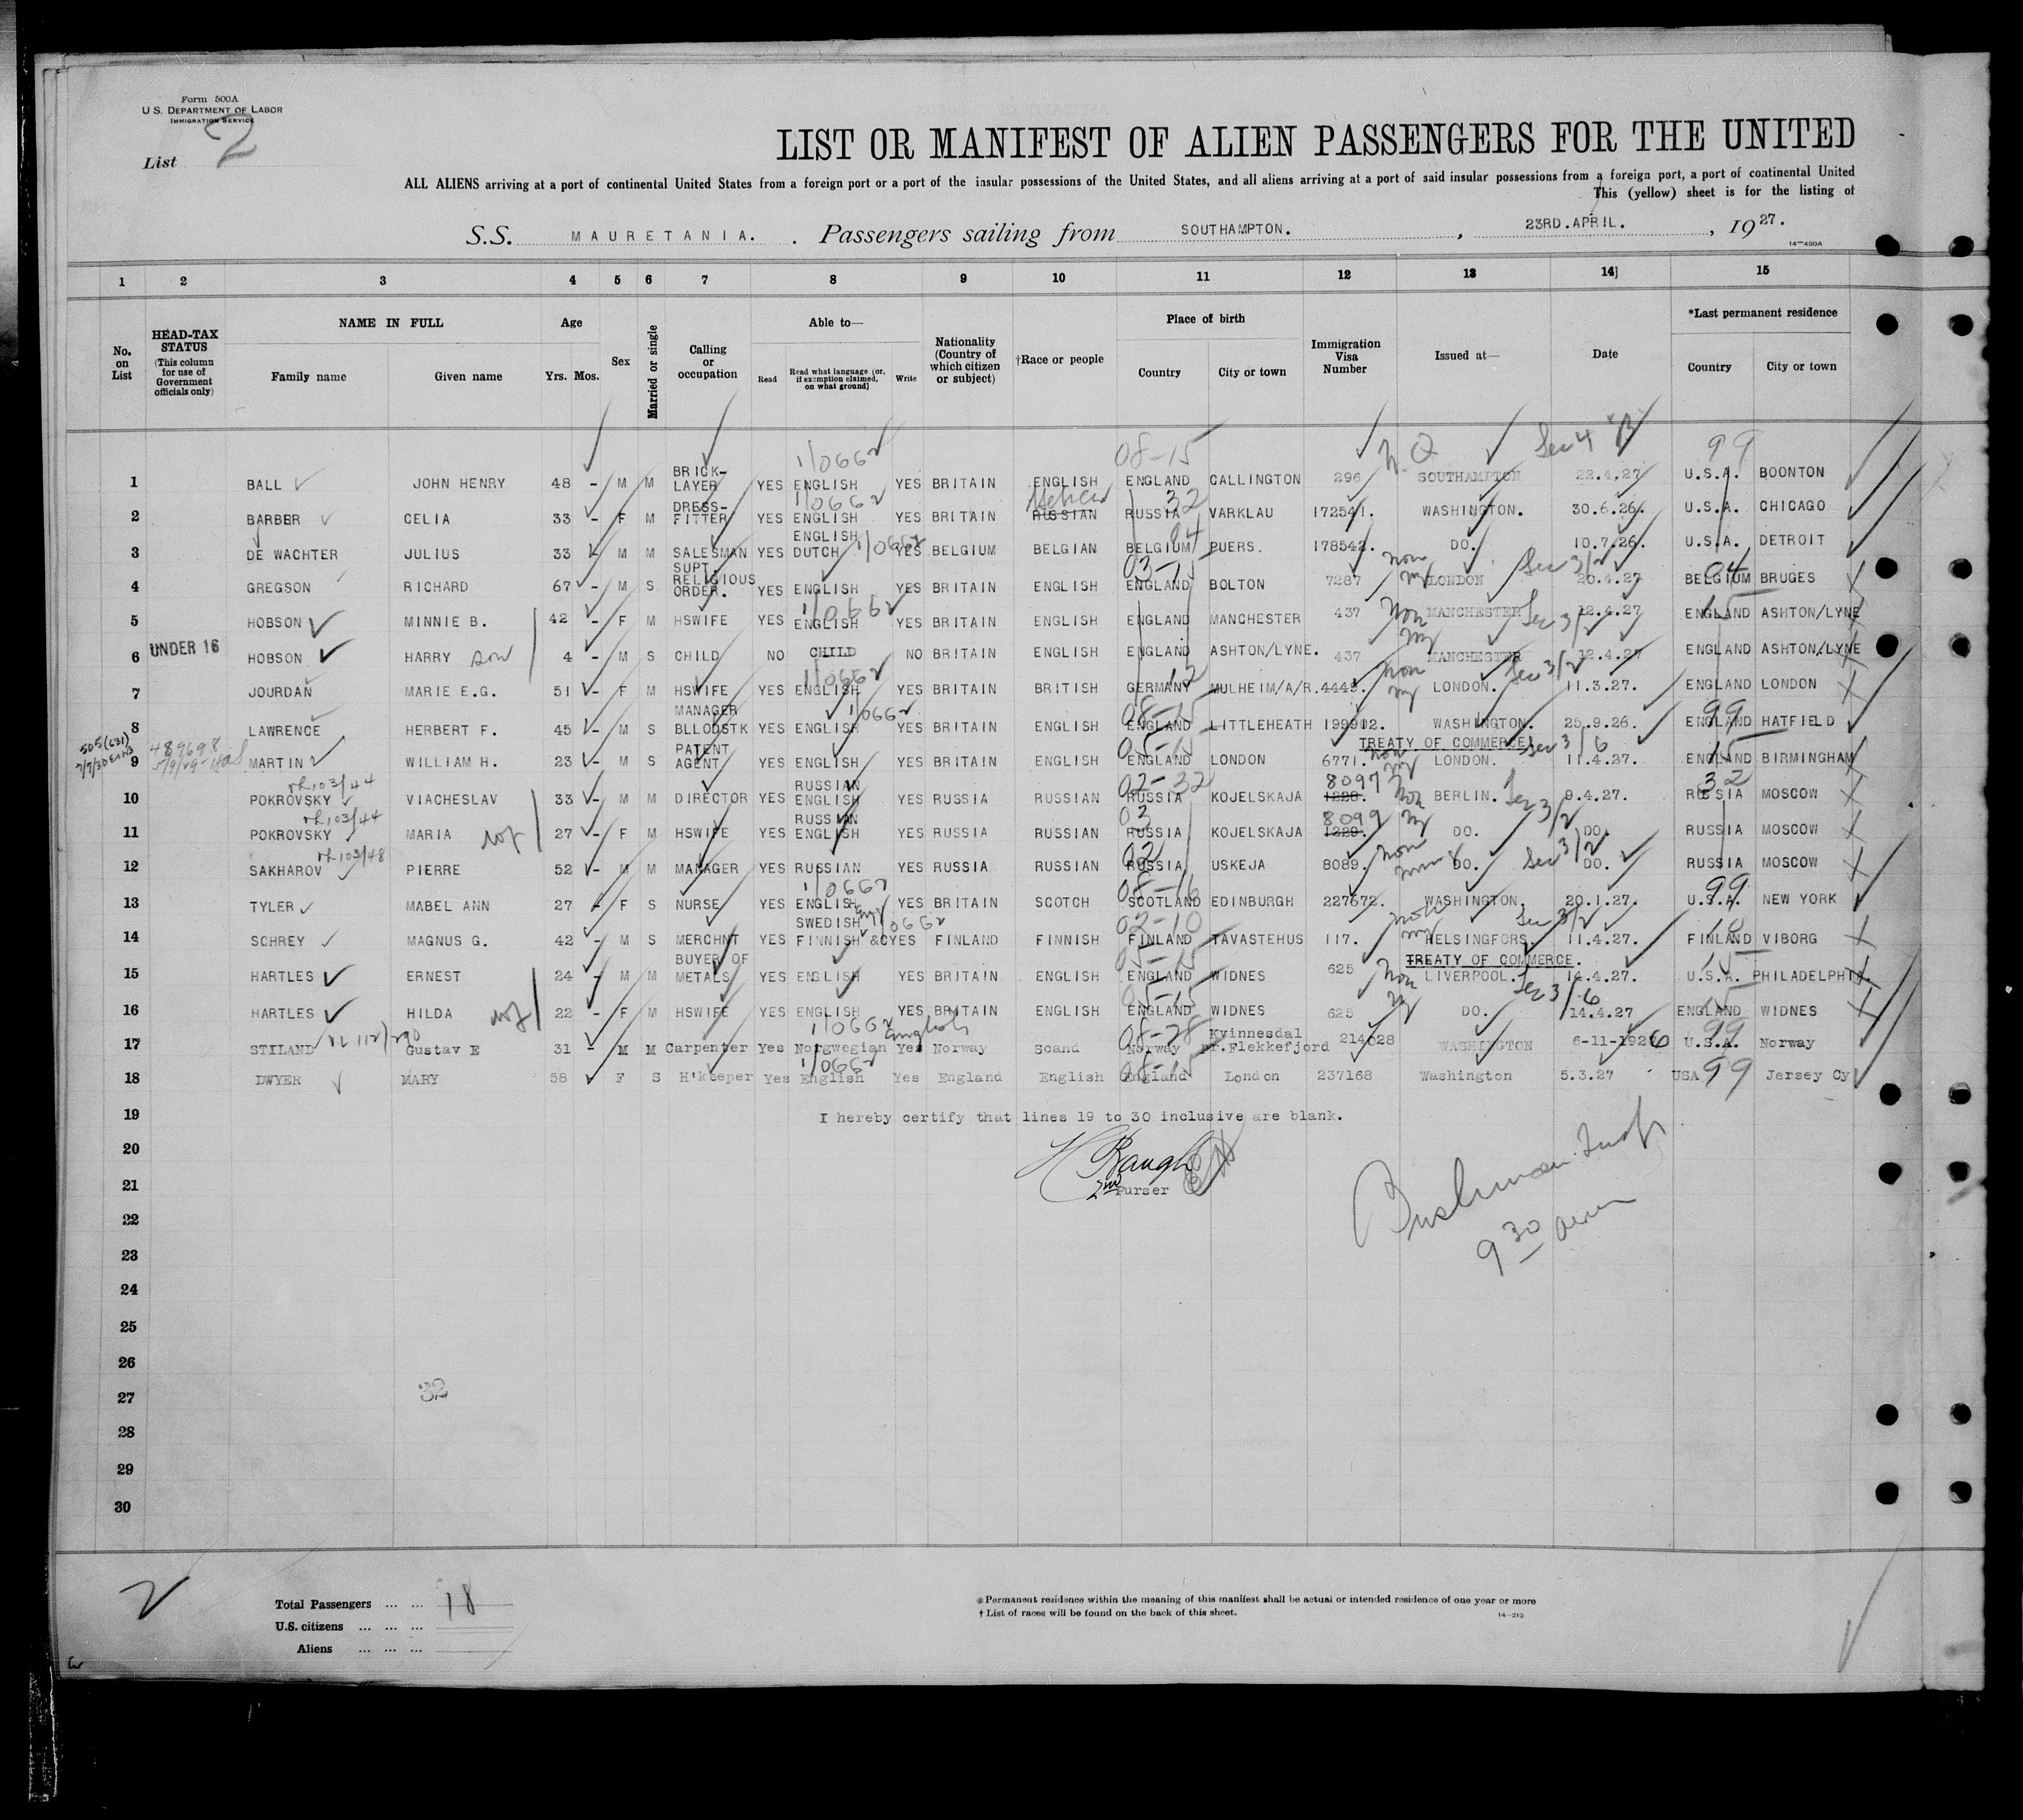 Form 500A
U. S. DEPARTMENT OF LABOR
IMMIGRATION SERVICE
List 2
LIST OR MANIFEST OF ALIEN PASSENGERS FOR THE UNITED
ALL ALIENS arriving at a port of continental United States from a foreign port or a port of the insular possessions of the United States, and all aliens arriving at a port of said insular possessions from a foreign port, a port of continental United
This (yellow) sheet is for the listing of
S.S. MAURETANIA. . Passengers sailing from SOUTHAMPTON. , 23RD.APRIL. , 1927.
14—430A
1 2 3 4 5 6 7 8 9 10 11 12 13 14 15
No. on List
HEAD-TAX STATUS (This column for use of Government officials only)
NAME IN FULL
Family name Given name
Age
Yrs. Mos.
Sex
Married or single
Calling or occupation
Able to—
Read Read what language (or, if exemption claimed, on what ground) Write
Nationality (Country of which citizen or subject)
†Race or people
Place of birth
Country City or town
Immigration Visa Number
Issued at—
Date
*Last permanent residence
Country City or town
1 BALL JOHN HENRY 48 - M M BRICK-LAYER YES ENGLISH 1/0662 YES BRITAIN ENGLISH 08-15 ENGLAND CALLINGTON 296 SOUTHAMPTON Sec 4 22.4.27 99 U.S.A. BOONTON
2 BARBER CELIA 33 - F M DRESS-FITTER YES ENGLISH 1/0662 YES BRITAIN Hebrew RUSSIAN 32 RUSSIA VARKLAU 172541. WASHINGTON. 30.6.26. U.S.A. CHICAGO
3 DE WACHTER JULIUS 33 - M M SALESMAN YES ENGLISH DUTCH 1/0662 YES BELGIUM BELGIAN 04 BELGIUM PUERS. 178542. DO. 10.7.26. U.S.A. DETROIT
4 GREGSON RICHARD 67 - M S SUPT. RELIGIOUS ORDER. YES ENGLISH YES BRITAIN ENGLISH 03-15 ENGLAND BOLTON 7287 LONDON Sec 3/2 20.4.27 04 BELGIUM BRUGES
5 HOBSON MINNIE B. 42 - F M HSWIFE YES 1/0662 ENGLISH YES BRITAIN ENGLISH ENGLAND MANCHESTER 437 Non MANCHESTER Sec 3/2 12.4.27 15 ENGLAND ASHTON/LYNE
6 UNDER 16 HOBSON HARRY son 4 - M S CHILD NO CHILD NO BRITAIN ENGLISH ENGLAND ASHTON/LYNE. 437 MANCHESTER 12.4.27 ENGLAND ASHTON/LYNE
7 JOURDAN MARIE E.G. 51 - F M HSWIFE YES 1/0662 ENGLISH YES BRITAIN BRITISH 12 GERMANY MULHEIM/A/R. 4445. LONDON. Sec 3/2 11.3.27. ENGLAND LONDON
8 LAWRENCE HERBERT F. 45 - M S MANAGER BLLODSTK YES 1/0662 ENGLISH YES BRITAIN ENGLISH 08-15 ENGLAND LITTLEHEATH 199912. WASHINGTON. 25.9.26. 99 ENGLAND HATFIELD
TREATY OF COMMERCE. Sec 3/6
9 489698 MARTIN WILLIAM H. 23 - M S PATENT AGENT YES ENGLISH YES BRITAIN ENGLISH 05-15 ENGLAND LONDON 6771. LONDON. 11.4.27. 15 ENGLAND BIRMINGHAM
10 POKROVSKY VIACHESLAV 33 - M M DIRECTOR YES RUSSIAN ENGLISH YES RUSSIA RUSSIAN 02-32 RUSSIA KOJELSKAJA 8097 1228. BERLIN. Sec 3/2 9.4.27. 32 RUSSIA MOSCOW
11 POKROVSKY MARIA wf 27 - F M HSWIFE YES RUSSIAN ENGLISH YES RUSSIA RUSSIAN 03 RUSSIA KOJELSKAJA 8099 1229. DO. DO. RUSSIA MOSCOW
12 SAKHAROV PIERRE 52 - M M MANAGER YES RUSSIAN YES RUSSIA RUSSIAN 02 RUSSIA USKEJA 8089. DO. Sec 3/2 DO. RUSSIA MOSCOW
13 TYLER MABEL ANN 27 - F S NURSE YES 1/0662 ENGLISH YES BRITAIN SCOTCH 08-16 SCOTLAND EDINBURGH 227672. WASHINGTON. 20.1.27. 99 U.S.A. NEW YORK
14 SCHREY MAGNUS G. 42 - M S MERCHNT YES SWEDISH Eng FINNISH &C 1/0662 YES FINLAND FINNISH 02-10 FINLAND TAVASTEHUS 117. HELSINGFORS. Sec 3/2 11.4.27. 10 FINLAND VIBORG
TREATY OF COMMERCE.
15 HARTLES ERNEST 24 - M M BUYER OF METALS YES ENGLISH YES BRITAIN ENGLISH 05-15 ENGLAND WIDNES 625 Non LIVERPOOL. 14.4.27. 15 U.S.A. PHILADELPHIA.
16 HARTLES HILDA wf 22 - F M HSWIFE YES ENGLISH YES BRITAIN ENGLISH 05-15 ENGLAND WIDNES 625 DO. Sec 3/6 14.4.27 15 ENGLAND WIDNES
17 STILAND Gustav E 31 - M M Carpenter Yes 1/0662 English Norgwegian Yes Norway Scand 08-28 Norway Kvinnesdal pr.Flekkefjord 214028 WASHINGTON 6-11-1926 99 U.S.A. Norway
18 DWYER MARY 58 F S H'keeper Yes 1/0662 English Yes England English 08-15 England London 237168 Washington 5.3.27 USA 99 Jersey Cy
19 I hereby certify that lines 19 to 30 inclusive are blank.
20
21 2nd Purser
22
23
24
25
26
27
28
29
30
32
9 30
Total Passengers ... ... 18
U.S. citizens ... ... ...
Aliens ... ... ...
* Permanent residence within the meaning of this manifest shall be actual or intended residence of one year or more
† List of races will be found on the back of this sheet.
14—213